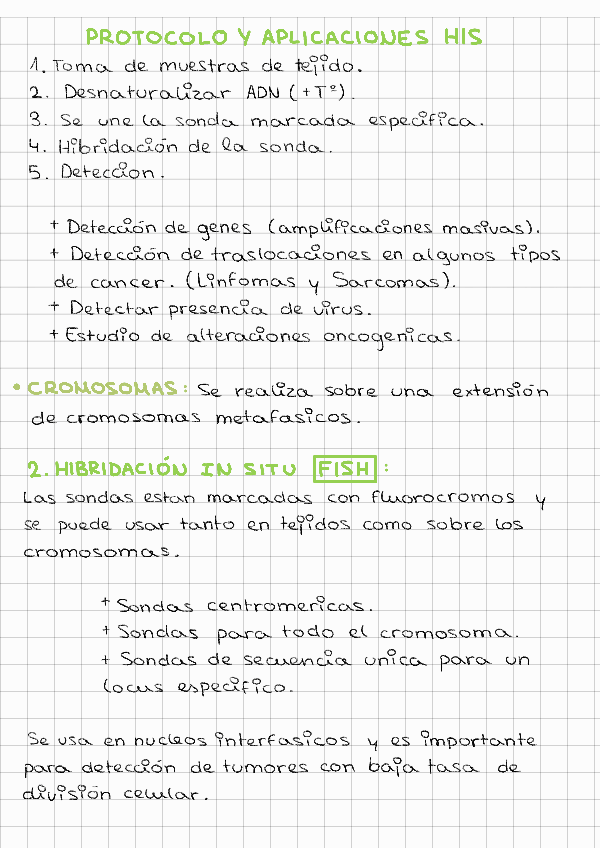 PROTOCOLO Y APLICACIONES HIS
1. Toma de muestras de tejido.
2. Desnaturalizar ADN (+Tº).
3. Se une la sonda marcada especifica.
4. Hibridación de la sonda.
5. Deteccion.
+ Detección de genes (amplificaciones masivas).
+ Detección de traslocaciones en algunos tipos
de cancer. (Linfomas y Sarcomas).
+ Detectar presencia de virus.
+ Estudio de alteraciones oncogenicas.
• CROMOSOMAS: Se realiza sobre una extensión
de cromosomas metafasicos.
2. HIBRIDACIÓN IN SITU FISH:
Las sondas estan marcadas con fluorocromos y
se puede usar tanto en tejidos como sobre los
cromosomas.
+ Sondas centromericas.
+ Sondas para todo el cromosoma.
+ Sondas de secuencia unica para un
locus especifico.
Se usa en nucleos interfasicos y es importante
para detección de tumores con baja tasa de
división celular.